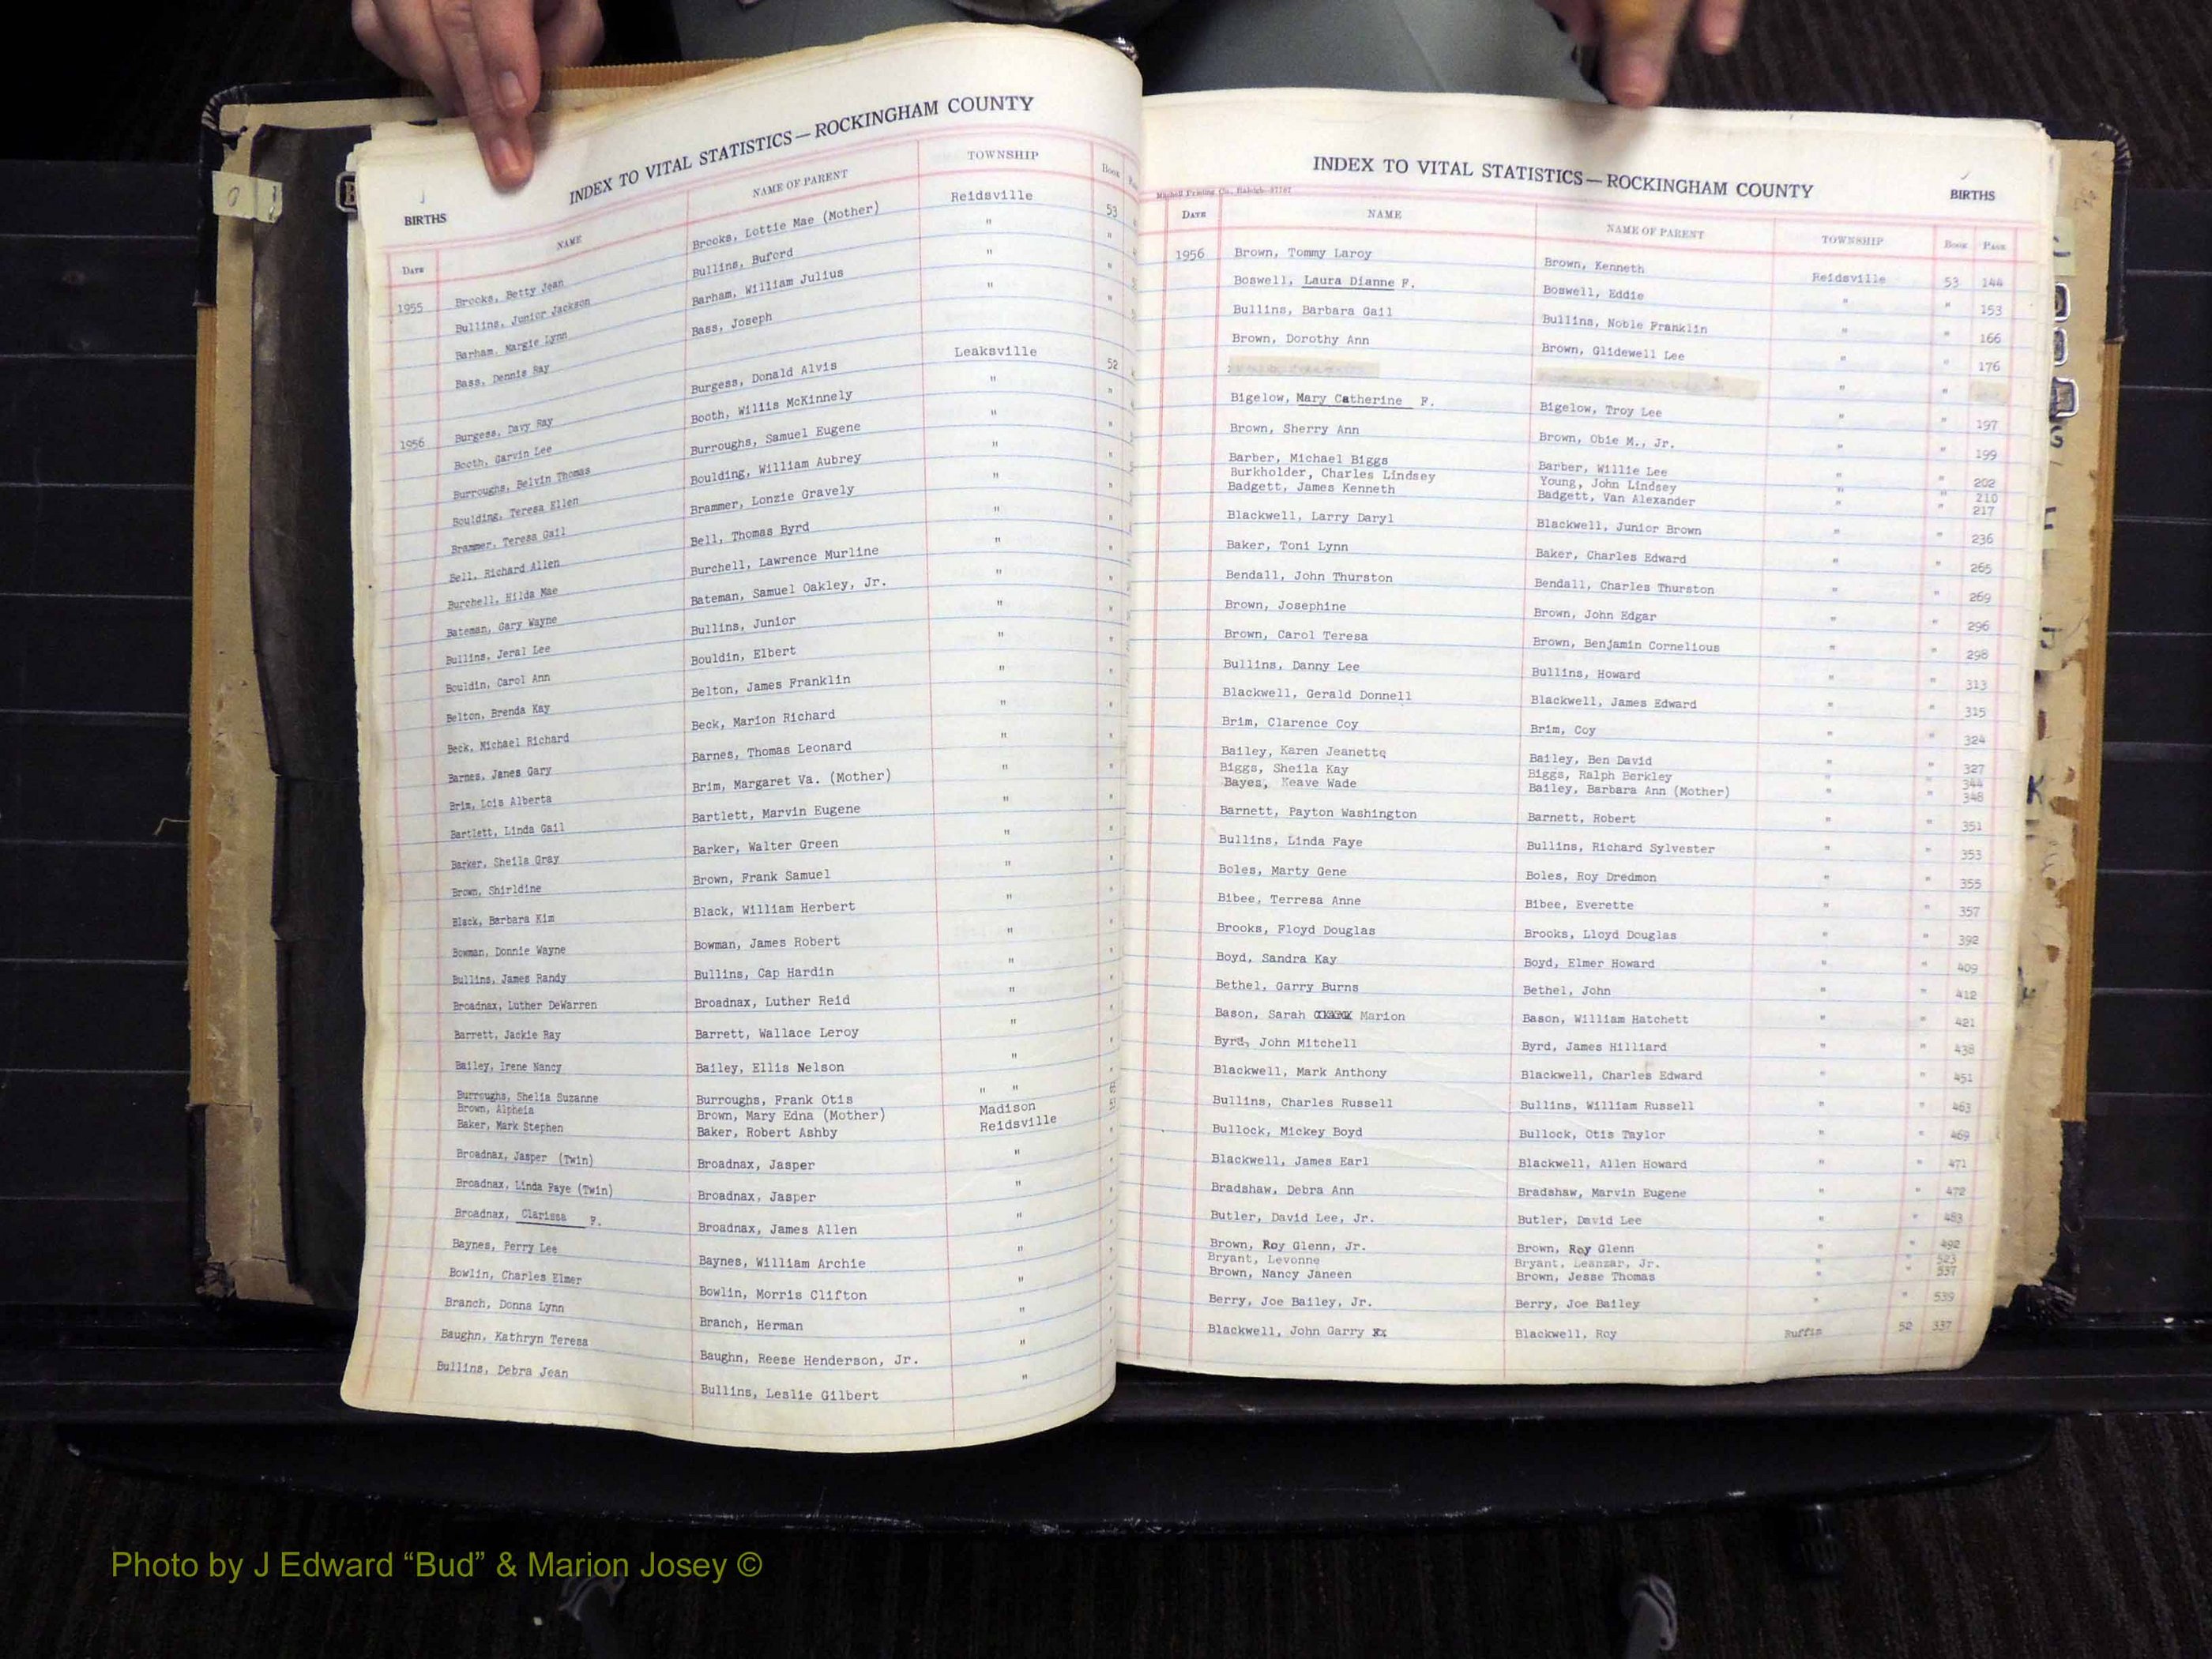 INDEX TO VITAL STATISTICS — ROCKINGHAM COUNTY
BIRTHS
DATE NAME NAME OF PARENT TOWNSHIP Book
1955 Brooks, Betty Jean Brooks, Lottie Mae (Mother) Reidsville 53
Bullins, Junior Jackson Bullins, Buford " "
Barham, Margie Lynn Barham, William Julius " "
Bass, Dennis Ray Bass, Joseph " "
1956 Burgess, Davy Ray Burgess, Donald Alvis Leaksville 52
Booth, Garvin Lee Booth, Willis McKinnely " "
Burroughs, Belvin Thomas Burroughs, Samuel Eugene " "
Boulding, Teresa Ellen Boulding, William Aubrey " "
Brammer, Teresa Gail Brammer, Lonzie Gravely " "
Bell, Richard Allen Bell, Thomas Byrd " "
Burchell, Hilda Mae Burchell, Lawrence Murline " "
Bateman, Gary Wayne Bateman, Samuel Oakley, Jr. " "
Bullins, Jeral Lee Bullins, Junior " "
Bouldin, Carol Ann Bouldin, Elbert " "
Belton, Brenda Kay Belton, James Franklin " "
Beck, Michael Richard Beck, Marion Richard " "
Barnes, Janes Gary Barnes, Thomas Leonard " "
Brim, Lois Alberta Brim, Margaret Va. (Mother) " "
Bartlett, Linda Gail Bartlett, Marvin Eugene " "
Barker, Sheila Gray Barker, Walter Green " "
Brown, Shirldine Brown, Frank Samuel " "
Black, Barbara Kim Black, William Herbert " "
Bowman, Donnie Wayne Bowman, James Robert " "
Bullins, James Randy Bullins, Cap Hardin " "
Broadnax, Luther DeWarren Broadnax, Luther Reid " "
Barrett, Jackie Ray Barrett, Wallace Leroy " "
Bailey, Irene Nancy Bailey, Ellis Nelson " "
Burroughs, Shelia Suzanne Burroughs, Frank Otis " "
Brown, Alpheia Brown, Mary Edna (Mother) Madison
Baker, Mark Stephen Baker, Robert Ashby Reidsville
Broadnax, Jasper (Twin) Broadnax, Jasper " "
Broadnax, Linda Faye (Twin) Broadnax, Jasper " "
Broadnax, Clarissa F. Broadnax, James Allen " "
Baynes, Perry Lee Baynes, William Archie " "
Bowlin, Charles Elmer Bowlin, Morris Clifton " "
Branch, Donna Lynn Branch, Herman " "
Baughn, Kathryn Teresa Baughn, Reese Henderson, Jr. " "
Bullins, Debra Jean Bullins, Leslie Gilbert "
INDEX TO VITAL STATISTICS — ROCKINGHAM COUNTY
Mitchell Printing Co., Raleigh
BIRTHS
DATE NAME NAME OF PARENT TOWNSHIP Book PAGE
1956 Brown, Tommy Laroy Brown, Kenneth Reidsville 53 144
Boswell, Laura Dianne F. Boswell, Eddie " " 153
Bullins, Barbara Gail Bullins, Noble Franklin " " 166
Brown, Dorothy Ann Brown, Glidewell Lee " " 176
" "
Bigelow, Mary Catherine F. Bigelow, Troy Lee " " 197
Brown, Sherry Ann Brown, Obie M., Jr. " " 199
Barber, Michael Biggs Barber, Willie Lee " " 202
Burkholder, Charles Lindsey Young, John Lindsey " " 210
Badgett, James Kenneth Badgett, Van Alexander " " 217
Blackwell, Larry Daryl Blackwell, Junior Brown " " 236
Baker, Toni Lynn Baker, Charles Edward " " 265
Bendall, John Thurston Bendall, Charles Thurston " " 269
Brown, Josephine Brown, John Edgar " " 296
Brown, Carol Teresa Brown, Benjamin Cornelious " " 298
Bullins, Danny Lee Bullins, Howard " " 313
Blackwell, Gerald Donnell Blackwell, James Edward " " 315
Brim, Clarence Coy Brim, Coy " " 324
Bailey, Karen Jeanette Bailey, Ben David " " 327
Biggs, Sheila Kay Biggs, Ralph Berkley " " 344
Bayes, Keave Wade Bailey, Barbara Ann (Mother) " " 348
Barnett, Payton Washington Barnett, Robert " " 351
Bullins, Linda Faye Bullins, Richard Sylvester " " 353
Boles, Marty Gene Boles, Roy Dredmon " " 355
Bibee, Terresa Anne Bibee, Everette " " 357
Brooks, Floyd Douglas Brooks, Lloyd Douglas " " 392
Boyd, Sandra Kay Boyd, Elmer Howard " " 409
Bethel, Garry Burns Bethel, John " " 412
Bason, Sarah Marion Bason, William Hatchett " " 421
Byrd, John Mitchell Byrd, James Hilliard " " 438
Blackwell, Mark Anthony Blackwell, Charles Edward " " 451
Bullins, Charles Russell Bullins, William Russell " " 463
Bullock, Mickey Boyd Bullock, Otis Taylor " " 469
Blackwell, James Earl Blackwell, Allen Howard " " 471
Bradshaw, Debra Ann Bradshaw, Marvin Eugene " " 472
Butler, David Lee, Jr. Butler, David Lee " " 483
Brown, Roy Glenn, Jr. Brown, Roy Glenn " " 492
Bryant, Levonne Bryant, Leanzar, Jr. " " 523
Brown, Nancy Janeen Brown, Jesse Thomas " " 537
Berry, Joe Bailey, Jr. Berry, Joe Bailey " " 539
Blackwell, John Garry xx Blackwell, Roy Ruffin 52 337
Photo by J Edward “Bud” & Marion Josey ©